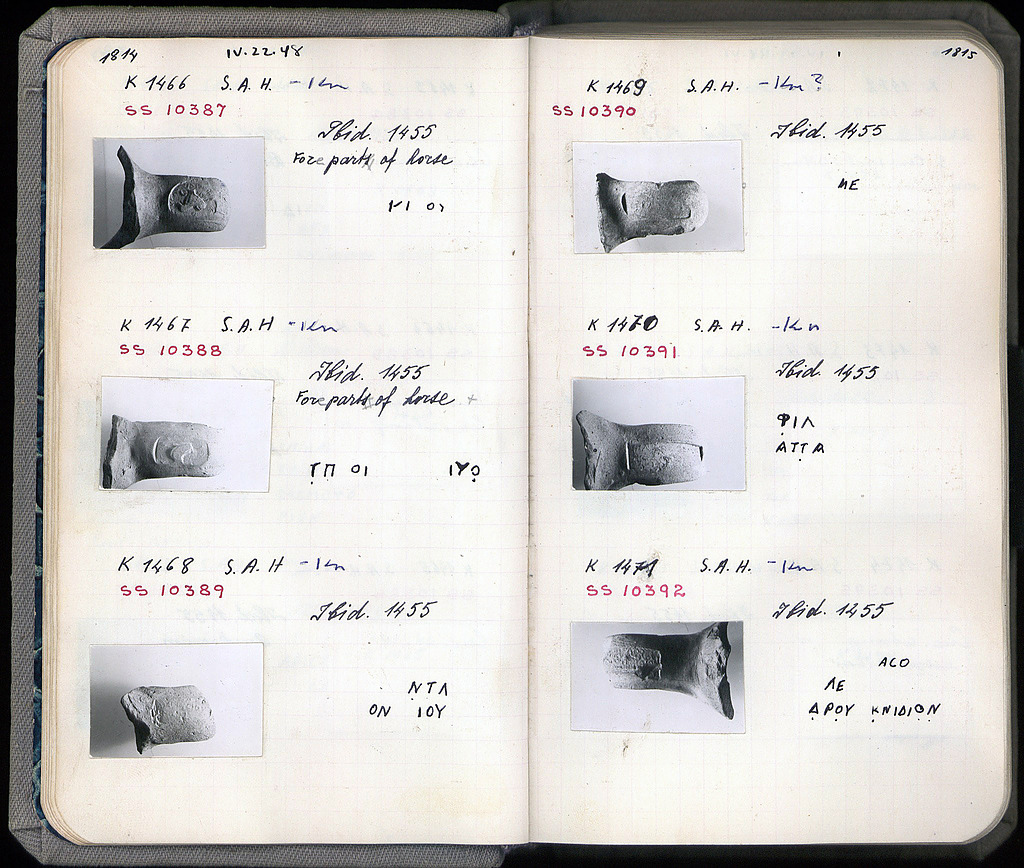 1814 IV.22.48
K 1466 S.A.H. -Kn
SS 10387
Ibid. 1455
Foreparts of horse
ΚΙ ΟΥ
K 1467 S.A.H -Kn
SS 10388
Ibid. 1455
Foreparts of horse
ΤΠ ΟΙ ΙΥΟ
K 1468 S.A.H -Kn
SS 10389
Ibid. 1455
ΝΤΛ
ΟΝ ΙΟΥ
1815
K 1469 S.A.H. -Kn?
SS 10390
Ibid. 1455
ΜΕ
K 1470 S.A.H. -Kn
SS 10391
Ibid. 1455
ΦΙΛ
ΑΤΤΑ
K 1471 S.A.H. -Kn
SS 10392
Ibid. 1455
ΑCΟ
ΛΕ
ΔΡΟΥ ΚΝΙΔΙΟΝ